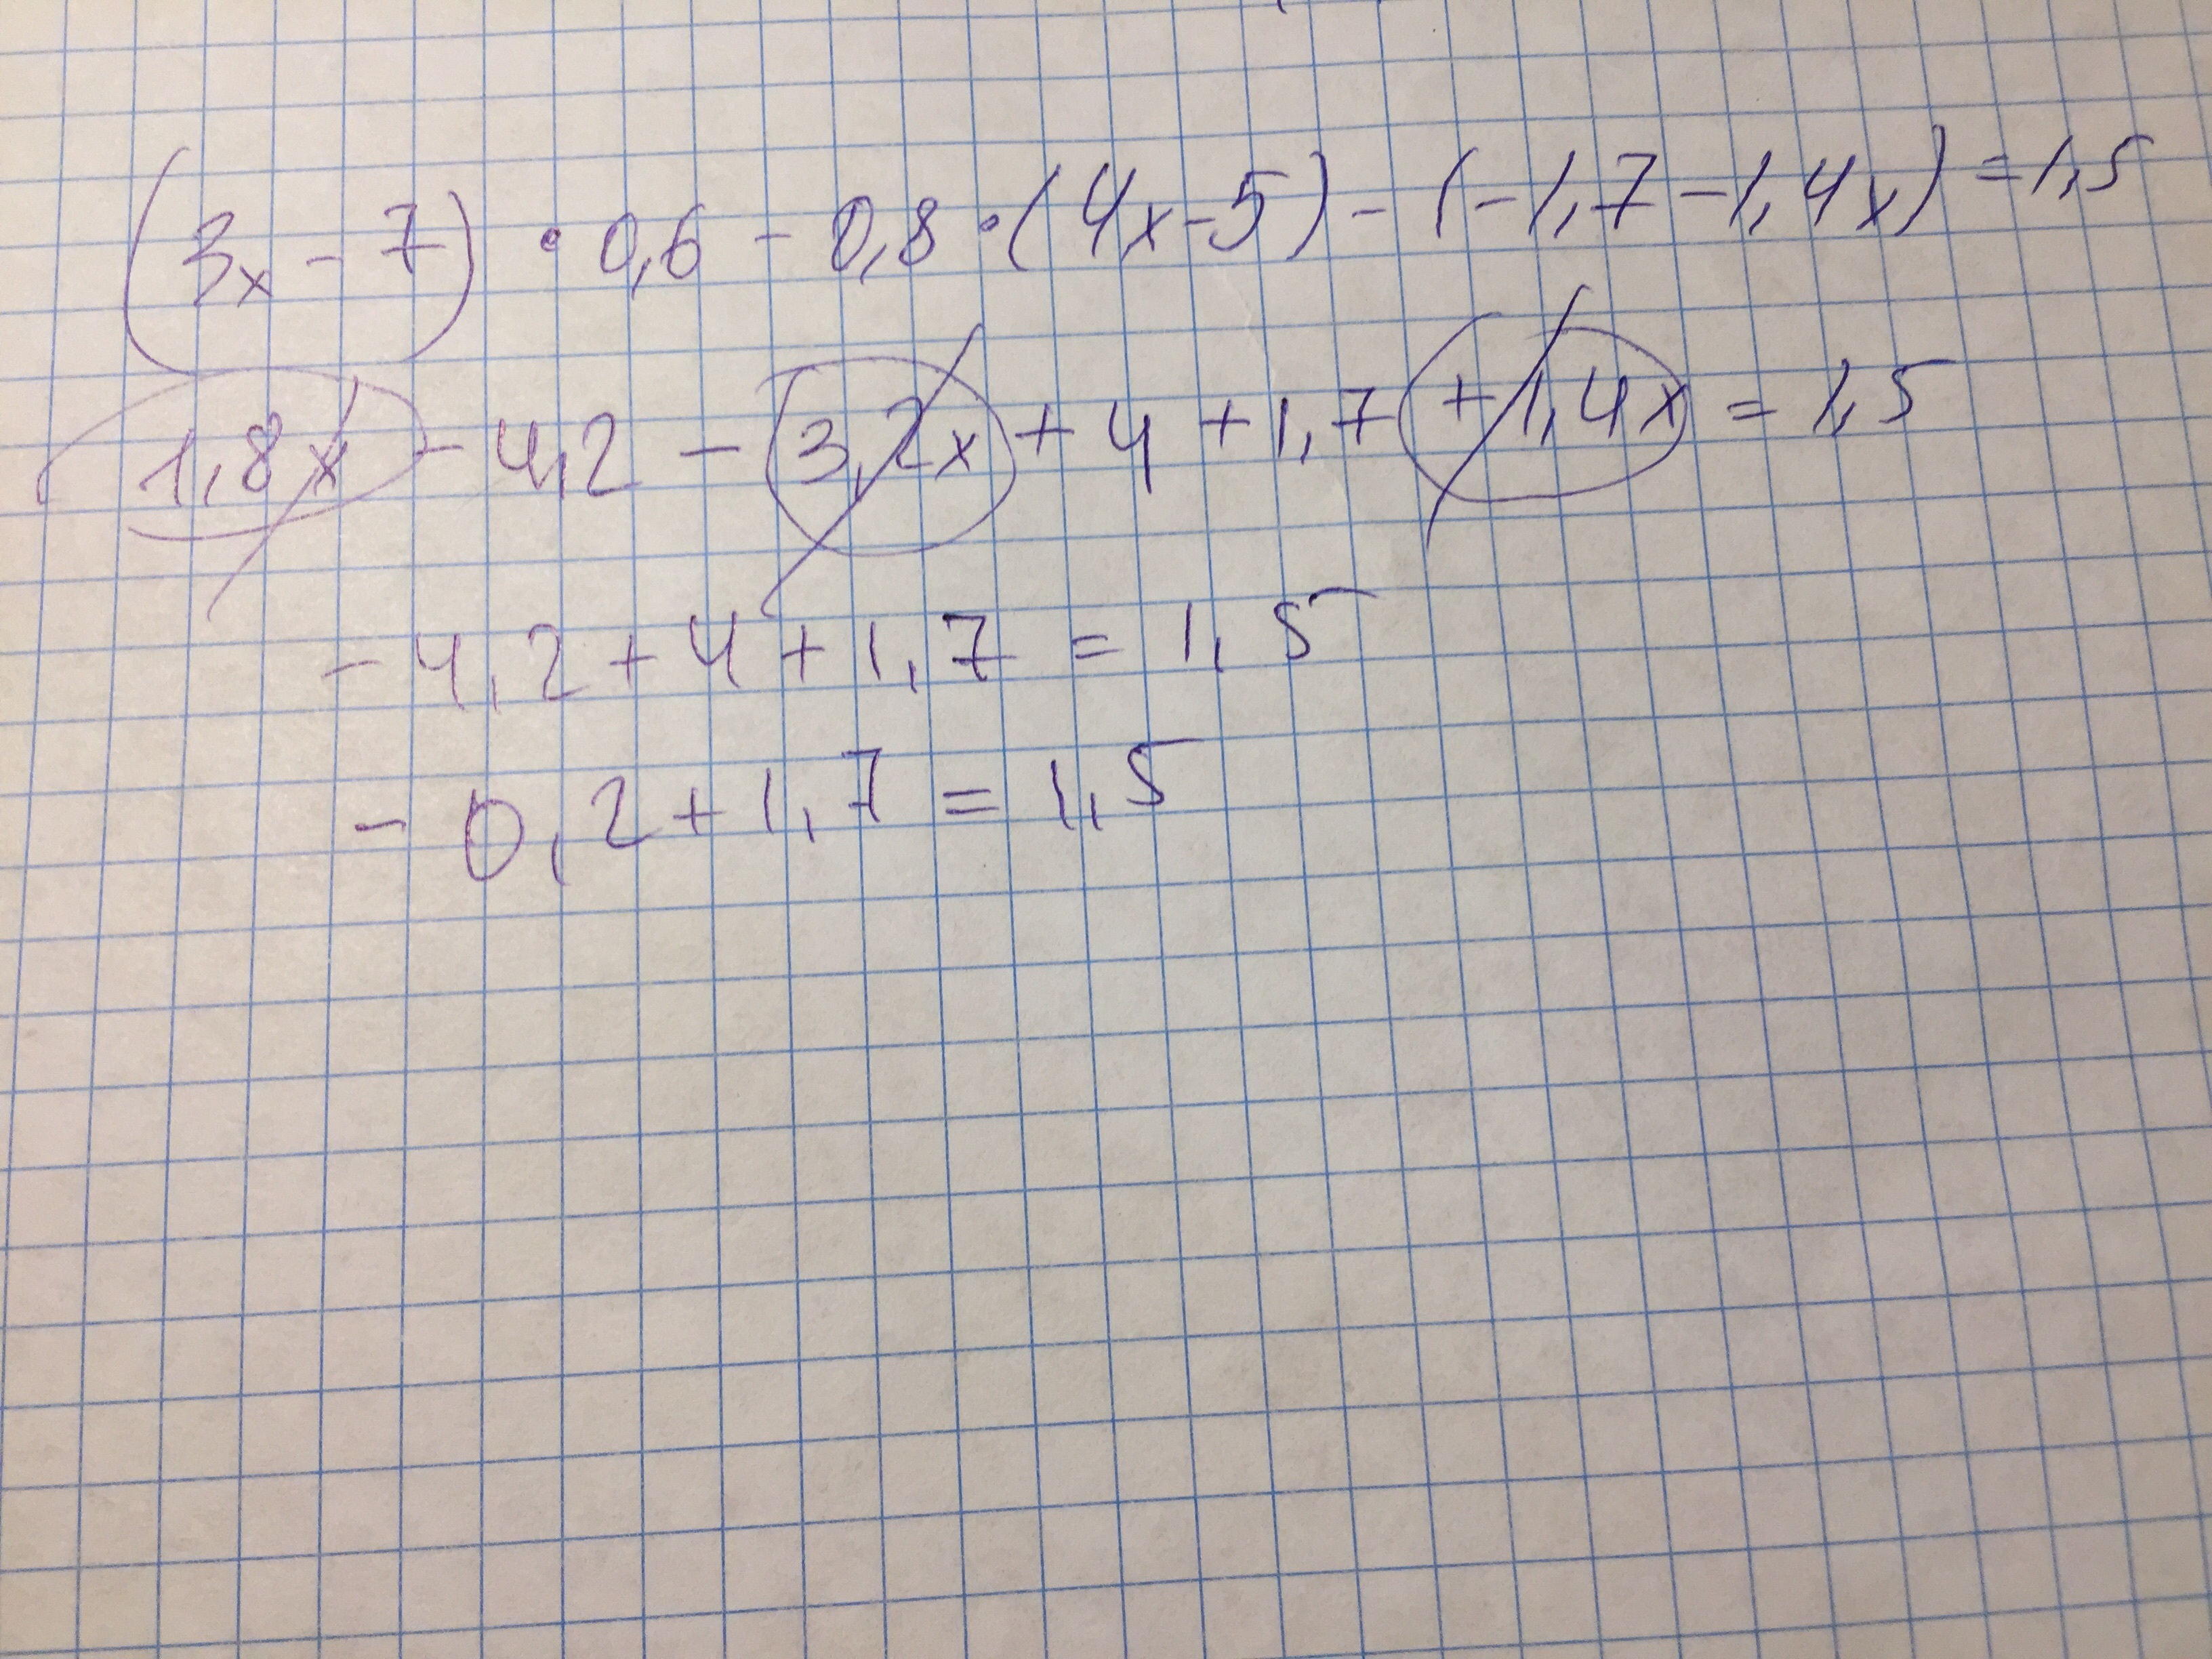 (3x - 7) • 0,6 - 0,8 • (4x - 5) - (-1,7 - 1,4x) = 1,5
1,8x - 4,2 - 3,2x + 4 + 1,7 + 1,4x = 1,5
- 4,2 + 4 + 1,7 = 1,5
- 0,2 + 1,7 = 1,5